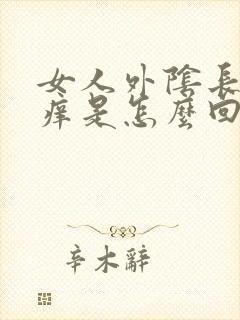 女人外陰長
痒是怎麼回
辛木辭